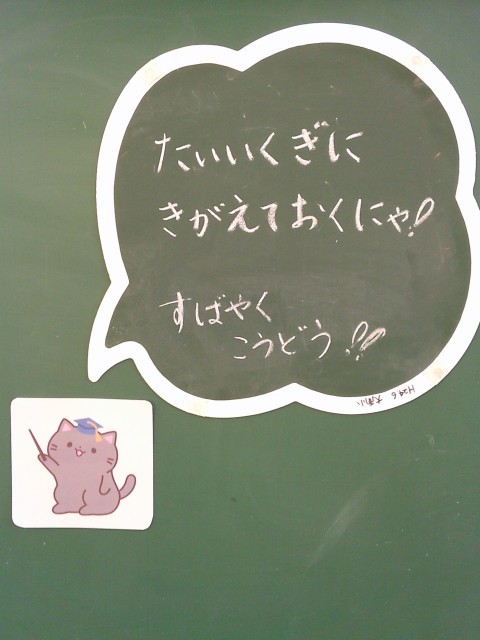 たいいくぎに
きがえておくにゃ!
すばやく
こうどう!!
H24 6